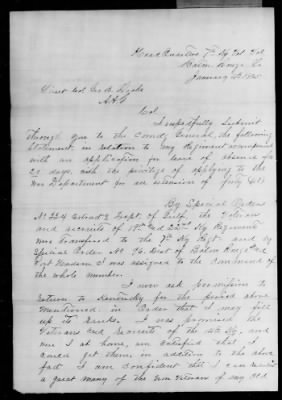 Head Quarters 7th Ky Vol
Baton Rouge La
January
Lieut Col Geo B Drake
A A G
Col.
I respectfully Submit
through you to the Comdg General, the following
Statement, in relation to my Regiment accompanied
with an application for leave of absence for
20 days, with the privilege of applying to the
War Department for an extension of forty days
By Special Orders
No 334 Extract 2 Dept. of Gulf, the Veterans
and recruits of 19th and 22nd Ky Regiments
was transferred to the 7th Ky Regt. and by
Special Order No 96 Dist of Baton Rouge and
Port Hudson I was assigned to the Command of
the whole number.
I now ask permission to
return to Kentucky for the period above
mentioned in Order that I may fill
up its Ranks. I was promised the
Veterans and Recruits of the Ky, and
were I at home, am satisfied that I
could get them, in addition to the above
fact I am confident that I can
a great many of the non veterans of my old